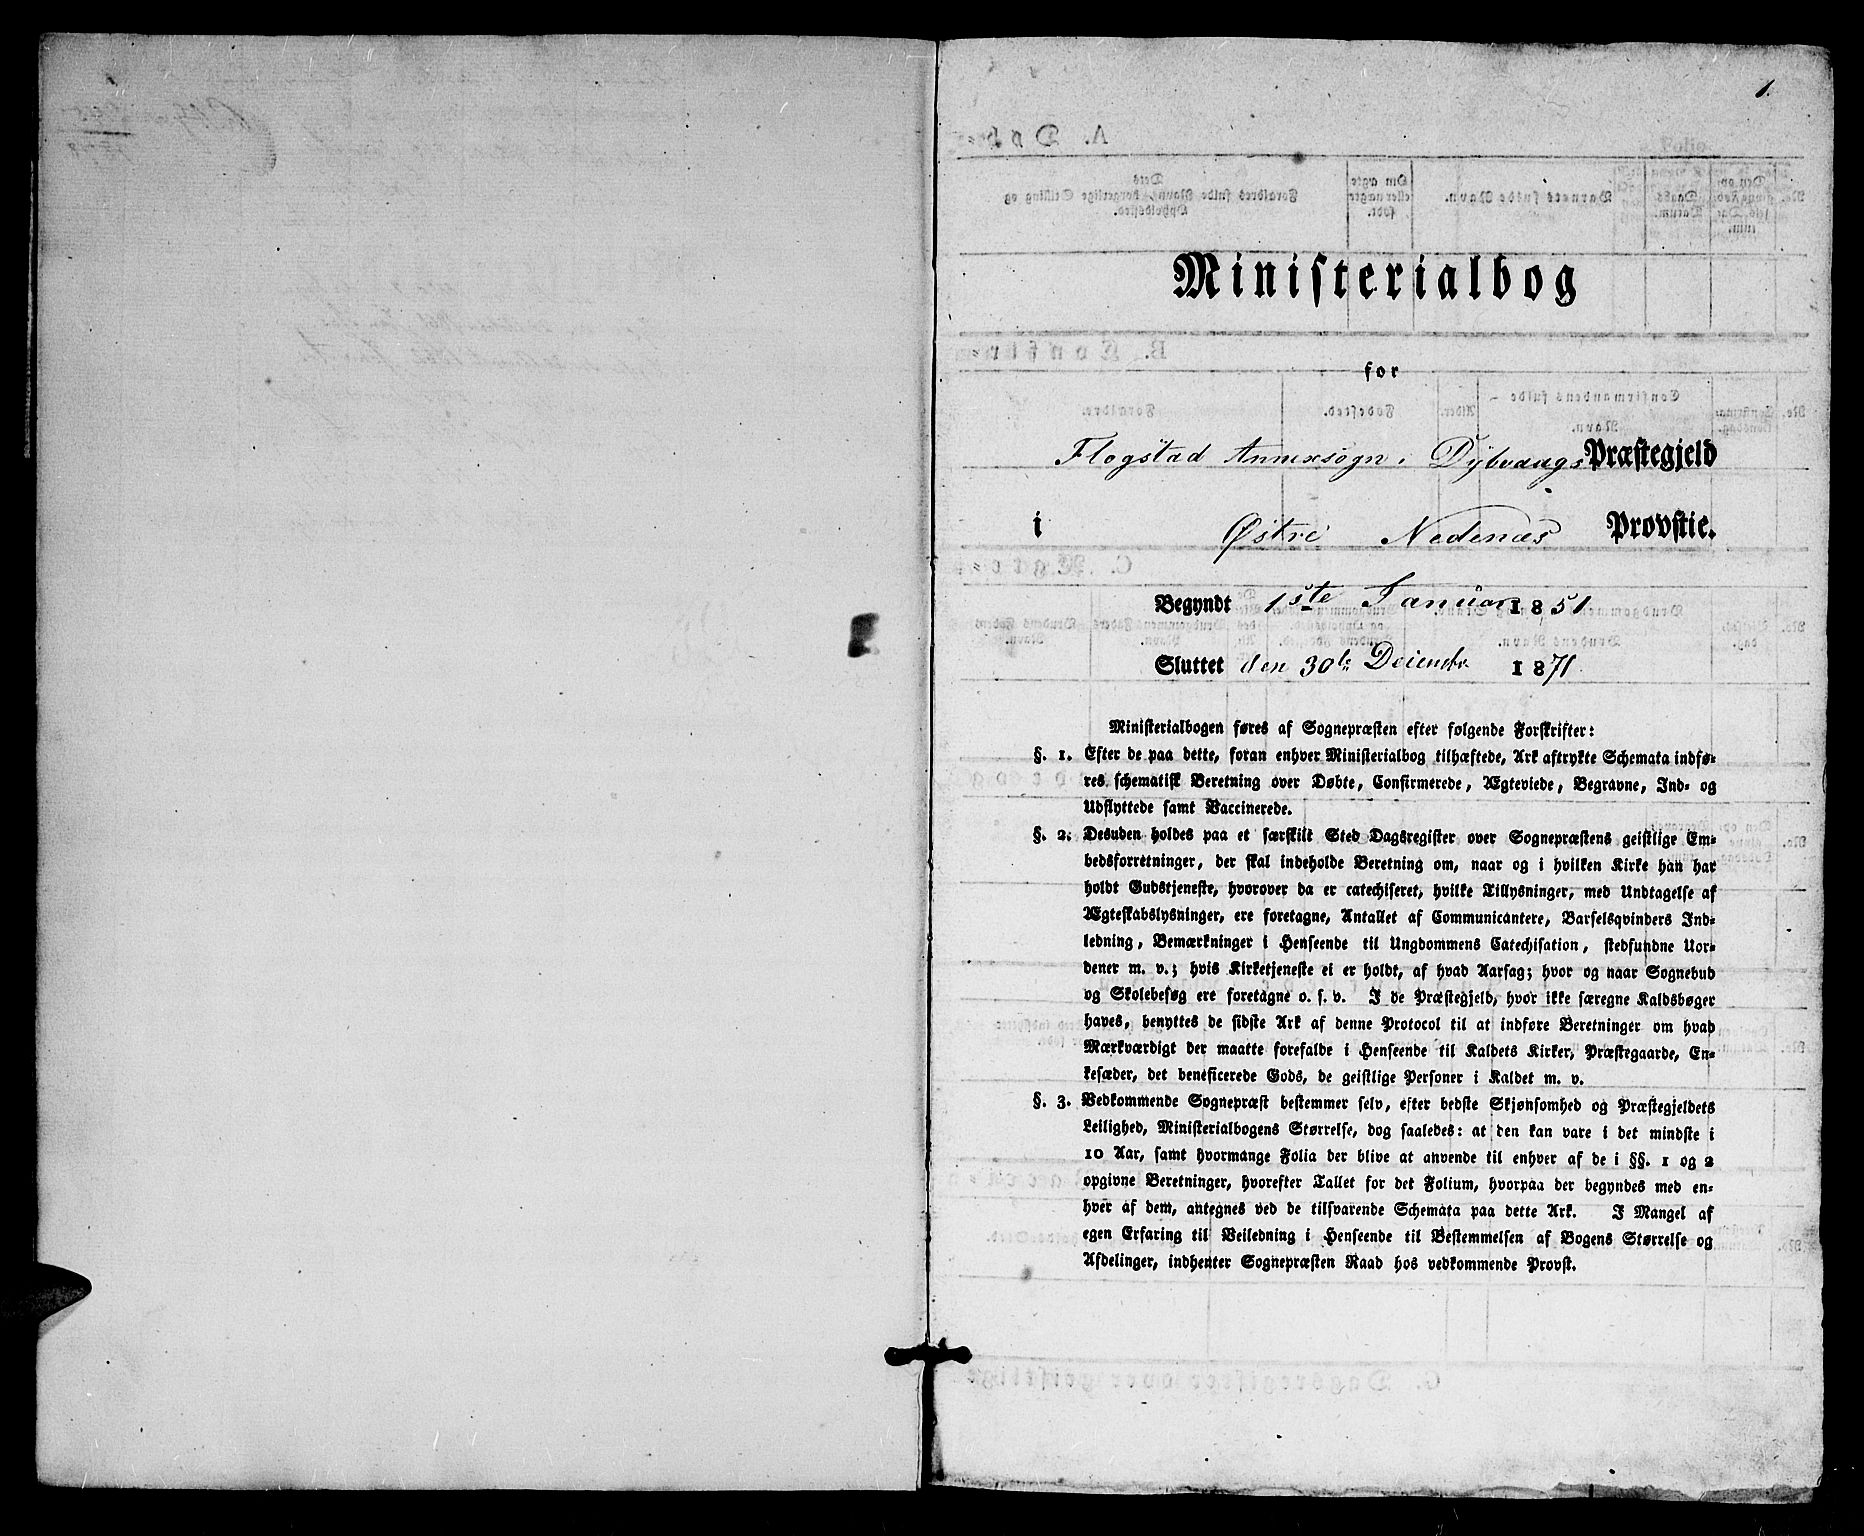 1.
Ministerialbog
for
Flogstad Annexsogn i Dybvaags Præstegjeld
i Østre Nedenæs Provstie.
Begyndt 1ste Januar 1851
Sluttet den 30te Decembr 1871
Ministerialbogen føres af Sognepræsten efter følgende Forskrifter:
§. 1. Efter de paa dette, foran enhver Ministerialbog tilhæftede, Ark aftrykte Schemata indfø-
res schematisk Beretning over Døbte, Confirmerede, Ægteviede, Begravne, Ind- og
Udflyttede samt Vaccinerede.
§. 2. Desuden holdes paa et særskilt Sted Dagsregister over Sognepræstens geistlige Em-
bedsforretninger, der skal indeholde Beretning om, naar og i hvilken Kirke han har
holdt Gudstjeneste, hvorover da er catechiseret, hvilke Tillysninger, med Undtagelse af
Ægteskabslysninger, ere foretagne, Antallet af Communicantere, Barselqvinders Ind-
ledning, Bemærkninger i Henseende til Ungdommens Catechisation, stedfundne Uor-
dener m. v.; hvis Kirketjeneste ei er holdt, af hvad Aarsag; hvor og naar Sognebud
og Skolebesøg ere foretagne o. s. v. I de Præstegjeld, hvor ikke særegne Kaldsbøger
haves, benyttes de sidste Ark af denne Protocol til at indføre Beretninger om hvad
Mærkværdigt der maatte forefalde i Henseende til Kaldets Kirker, Præstegaarde, En-
kesæder, det beneficerede Gods, de geistlige Personer i Kaldet m. v.
§. 3. Vedkommende Sognepræst bestemmer selv, efter bedste Skjønsomhed og Præstegjeldets
Leilighed, Ministerialbogens Størrelse, dog saaledes: at den kan vare i det mindste i
10 Aar, samt hvormange Folia der blive at anvende til enhver af de i §§. 1 og 2
opgivne Beretninger, hvorefter Tallet for det Folium, hvorpaa der begyndes med en-
hver af dem, antegnes ved de tilsvarende Schemata paa dette Ark. I Mangel af
egen Erfaring til Veiledning i Henseende til Bestemmelsen af Bogens Størrelse og
Afdelinger, indhenter Sognepræsten Raad hos vedkommende Provst.